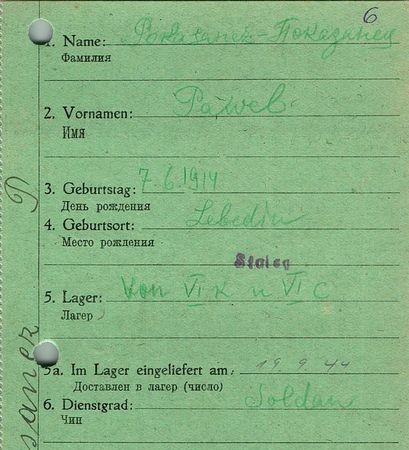 6
1. Name: Показанец
Фамилия
2. Vornamen: Pawel
Имя
3. Geburtstag: 7.6.1914
День рождения
4. Geburtsort: Lebedin
Место рождения
Stalag
5. Lager: Von VI K u VI C
Лагер
5a. Im Lager eingeliefert am: 19.9.44
Доставлен в лагер (число)
6. Dienstgrad: Soldat
Чин